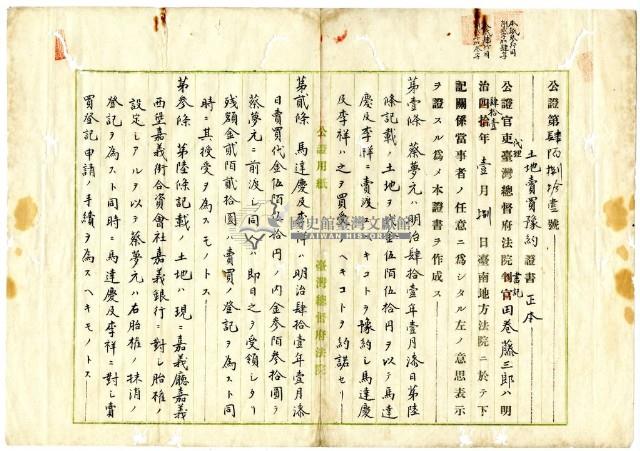 公證第肆百捌拾壹號
土地賣買豫約證書 正本
公證官吏臺灣總督府法院判官代理書記田巻藤三郎ハ明
治四拾肆拾壹年壹月捌日臺南地方法院ニ於テ下
記關係當事者ノ任意ニ爲シタル左ノ意思表示
ヲ證スル爲メ本證書ヲ作成ス
第壹條 蔡夢元ハ明治肆拾壹年壹月漆日第陸
條記載ノ土地ヲ金伍佰伍拾円ヲ以テ馬達
慶及李祥ニ賣渡スヘキコトヲ豫約シ馬達慶
及李祥ハ之ヲ買受クヘキコトヲ約諾セリ
公證用紙 臺灣總督府法院
第貳條 馬達慶及李祥ハ明治肆拾壹年壹月漆
日賣買代金伍佰伍拾円ノ内金參陌參拾圓ヲ
蔡夢元ニ前渡シ同人ハ即日之ヲ受領シタリ
残額金貳陌貳拾圓ハ賣買ノ登記ヲ為スト同
時ニ其授受ヲ為スモノトス
第參條 第陸條記載ノ土地ハ現ニ嘉義廳嘉義
西堡嘉義街合資會社嘉義銀行ニ對シ胎権ノ
設定シアルヲ以テ蔡夢元ハ右胎権ノ抹消ノ
登記ヲ為スト同時ニ馬達慶及李祥ニ對シ賣
買登記申請ノ手續ヲ為スヘキモノトス
國史館臺灣文獻館
TAIWAN HISTORICA